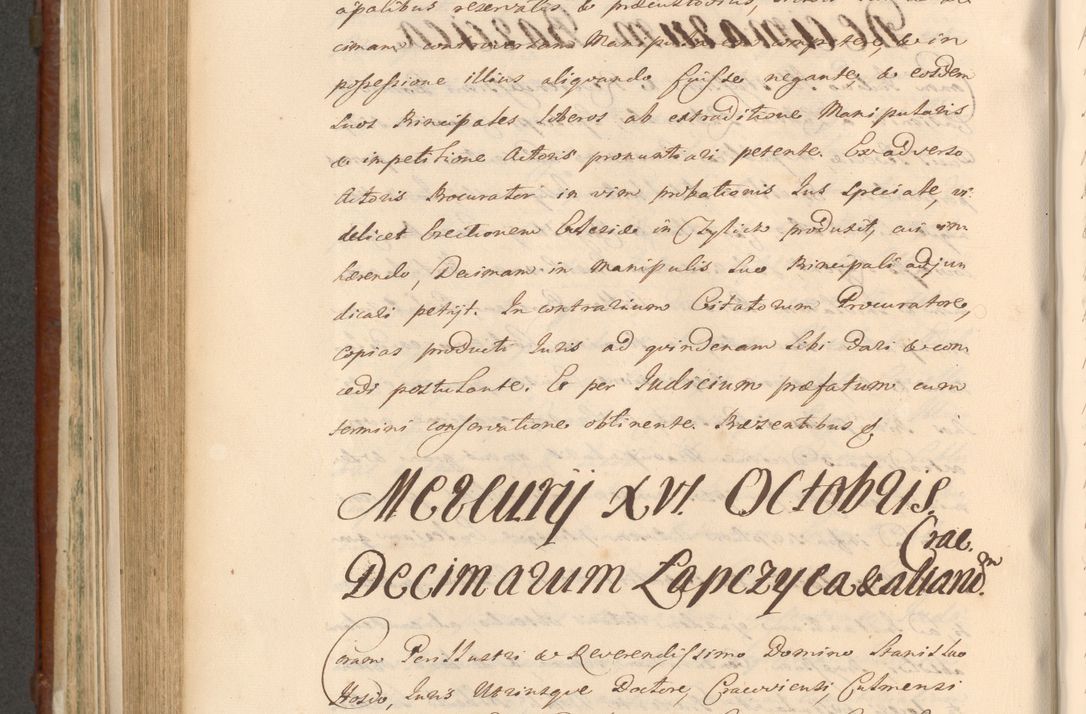 cimam controversam Manipularem competere, & in
possessione illius aliquando fuisse negante, & eosdem
suos Principales liberos ab extraditione Manipularis
& impetitione Actoris pronuntiari petente. Ex adverso
Actoris Procurator in vim probationis Jus speciale, vi-
delicet Erectionem Ecclesiæ in Czylick produxit, cui in-
hærendo, Decimam in Manipulis suo Principali adjun-
dicari petijt. In contrarium Citatorum Procuratore,
copias producti Juris ad quindenam sibi dari & con-
cedi postulante. Et per Judicium præfatum cum
termini conservatione obtinente. Præsentibus
Mercurij XVI. Octobris.
Crac.
Decimarum Lapczyca & aliand.m
Coram Perillustri & Reverendissimo Domino Stanislao
Hosio, Juris Utriusque Doctore, Cracoviensi, Culmensi